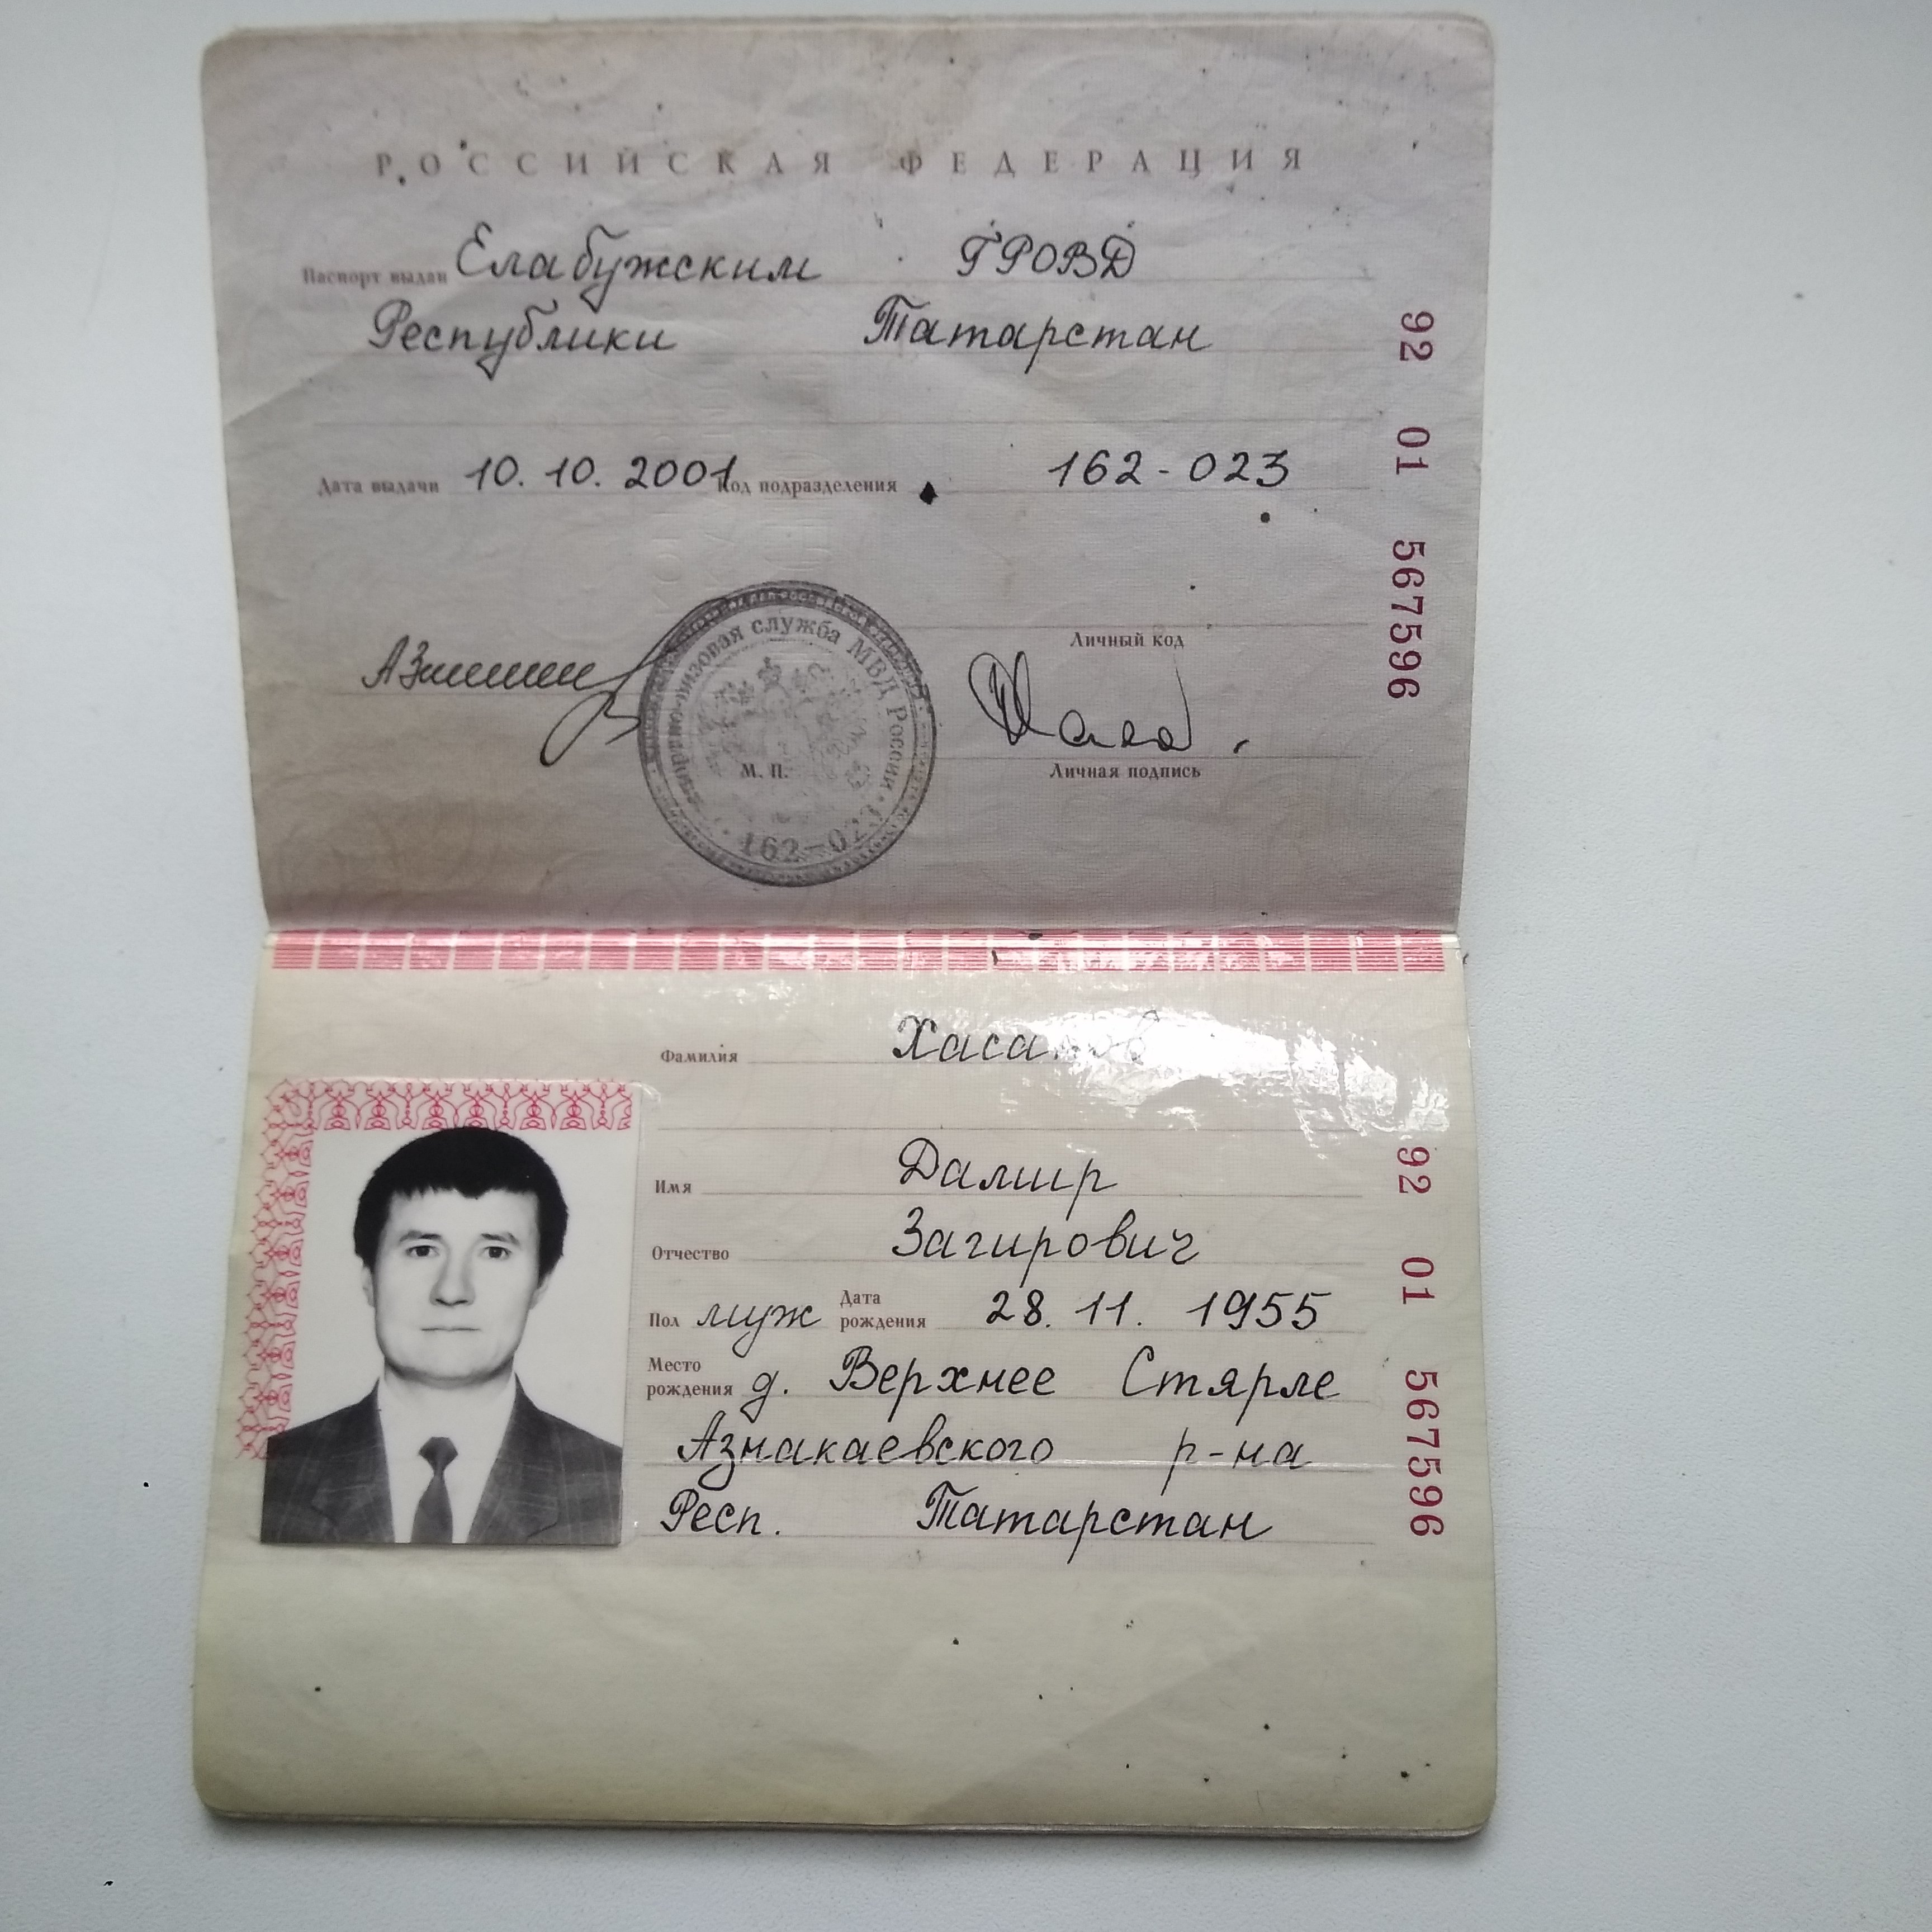 РОССИЙСКАЯ ФЕДЕРАЦИЯ
Паспорт выдан Елабужским ГРОВД
Республики Татарстан
Дата выдачи 10.10.2001 Код подразделения 162-023
92 01 567596
Личный код
служба МВД России
М. П.
162-023
Личная подпись
Фамилия Хасанов
Имя Дамир
Отчество Загирович
Пол муж Дата рождения 28.11.1955
Место рождения д. Верхнее Стярле
Азнакаевского р-на
Респ. Татарстан
92 01 567596